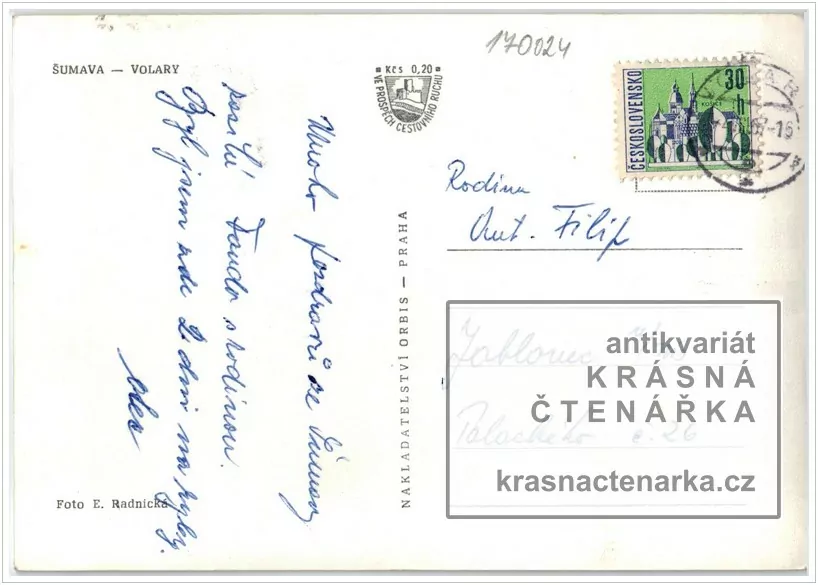 170024
ŠUMAVA — VOLARY
Kčs 0,20
VE PROSPĚCH CESTOVNÍHO RUCHU
ČESKOSLOVENSKO
30
h
KOŠICE
Mnoho pozdravů ze Šumavy
posílá Fanda s rodinou.
Byl jsem zde 2 dni na ryby.
NAKLADATELSTVÍ ORBIS — PRAHA
Rodina
Ant. Filip
Jablonec
Palackého č. 26
antikvariát
KRÁSNÁ
ČTENÁŘKA
krasnactenarka.cz
Foto E. Radnická